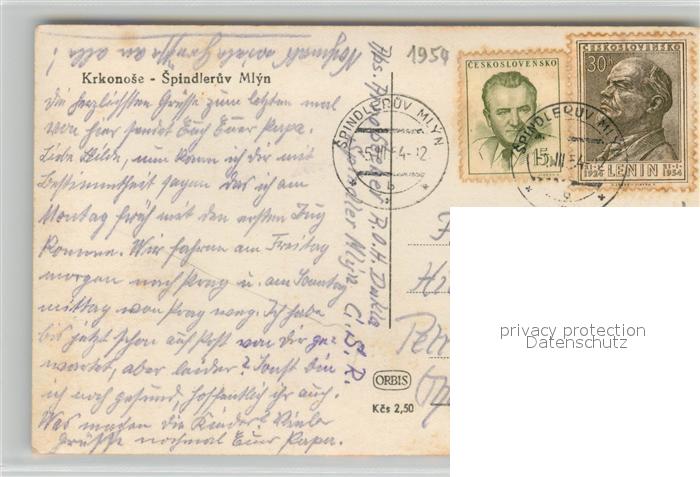 Nochmals viele Grüße an alle!
Krkonoše - Špindlerův Mlýn
Die herzlichsten Grüsse zum letzten mal
von hier sendet Euch Euer Papa.
Liebe Hilde, nun kann ich dir mit
Bestimmtheit sagen das ich am
Montag früh mit den ersten Zug
komme. Wir fahren am Freitag
morgen nach Prag u. am Sonntag
mittag von Prag weg. Ich habe
bis jetzt schon auf Post von dir ge=
wartet, aber leider? Sonst bin
ich noch gesund, hoffentlich ihr auch.
Was machen die Kinder? Viele
Grüsse nochmal Euer Papa.
Abs. R.O.H. Dukla
Spindler Mlýn Č.S.R.
1954
ČESKOSLOVENSKO
15
ČESKOSLOVENSKO
30h
21-1-1924 LENIN 21-1-1954
ŠPINDLERŮV MLÝN
b
ŠPINDLERŮV MLÝN
ORBIS
Kčs 2,50
privacy protection
Datenschutz